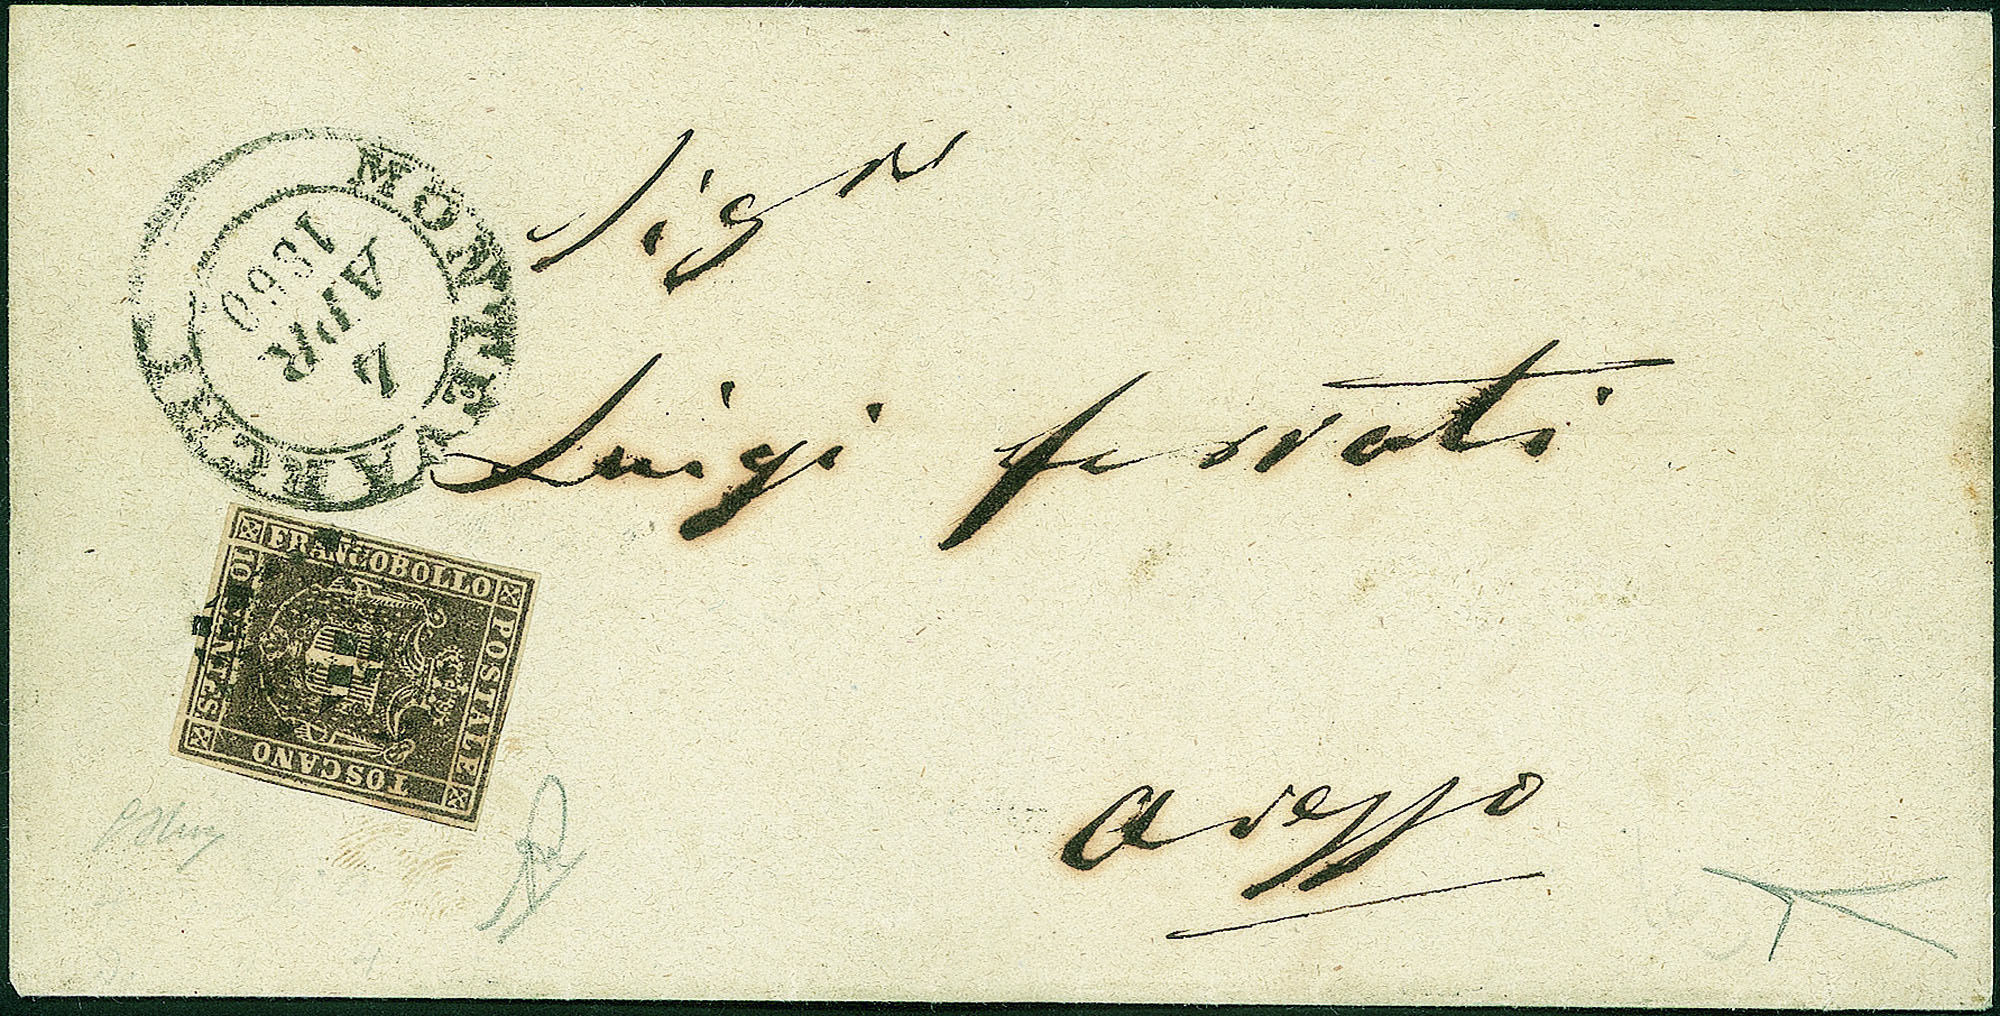 MONTEVARCHI
7
APR
1860
Sigr
Luigi Ferrati
Arezzo
FRANCOBOLLO
POSTALE
TOSCANO
10 CENTES